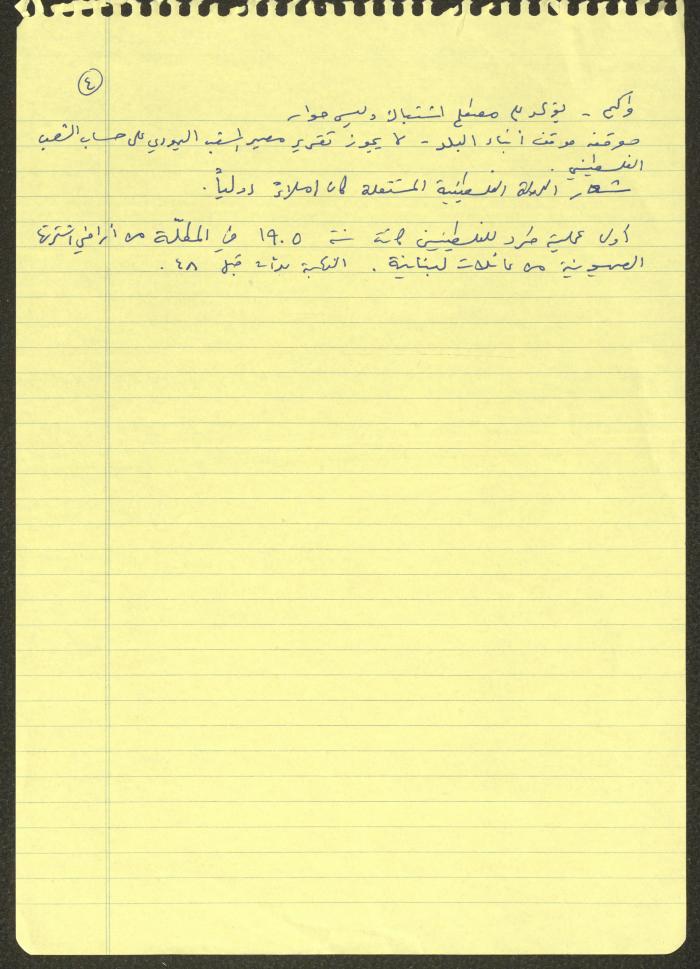 ٤
واكيم - يؤكد على مصطلح اشتباك وليس حوار
موقفه موقف أبناء البلد - لا يجوز تقرير مصير الشعب اليهودي على حساب الشعب
الفلسطيني.
شعار الدولة الفلسطينية المستقلة كان املاءً دولياً.
أول عملية طرد للفلسطينيين كانت سنة ١٩٠٥ في المطلّة من أراضي اشترتها
الصهيونية من عائلات لبنانية. النكبة بدأت قبل ٤٨.